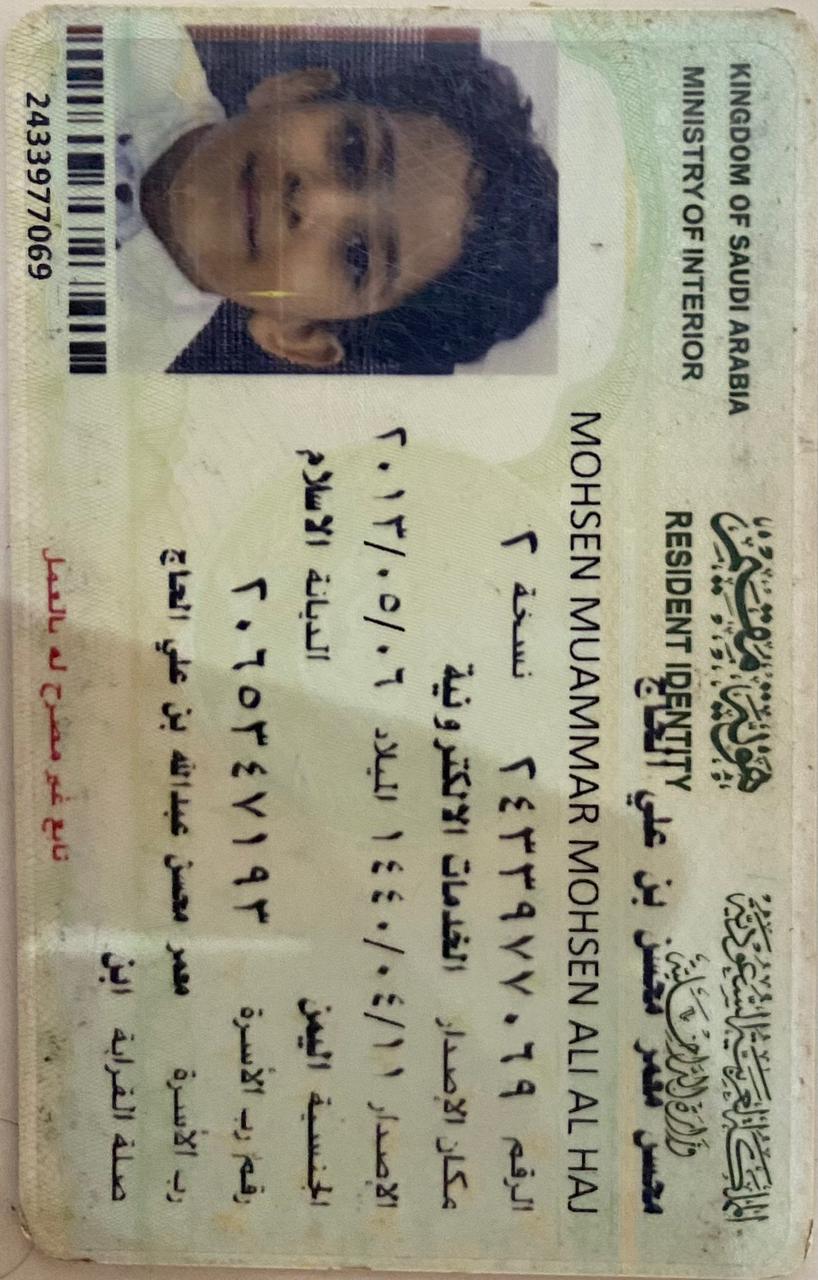 المملكة العربية السعودية
وزارة الداخلية
هوية مقيم
KINGDOM OF SAUDI ARABIA
MINISTRY OF INTERIOR
RESIDENT IDENTITY
محسن معمر محسن بن علي الحاج
MOHSEN MUAMMAR MOHSEN ALI AL HAJ
الرقم ٢٤٣٣٩٧٧٠٦٩ نسخة ٢
مكان الإصدار الخدمات الالكترونية
الإصدار ١٤٤٠/٠٤/١١ الميلاد ٢٠١٣/٠٥/٠٦
الجنسية اليمن الديانة الاسلام
رقم رب الأسرة ٢٠٦٥٣٤٧١٩٣
رب الأسرة معمر محسن عبدالله بن علي الحاج
صلة القرابة ابن
تابع غير مصرح له بالعمل
2433977069